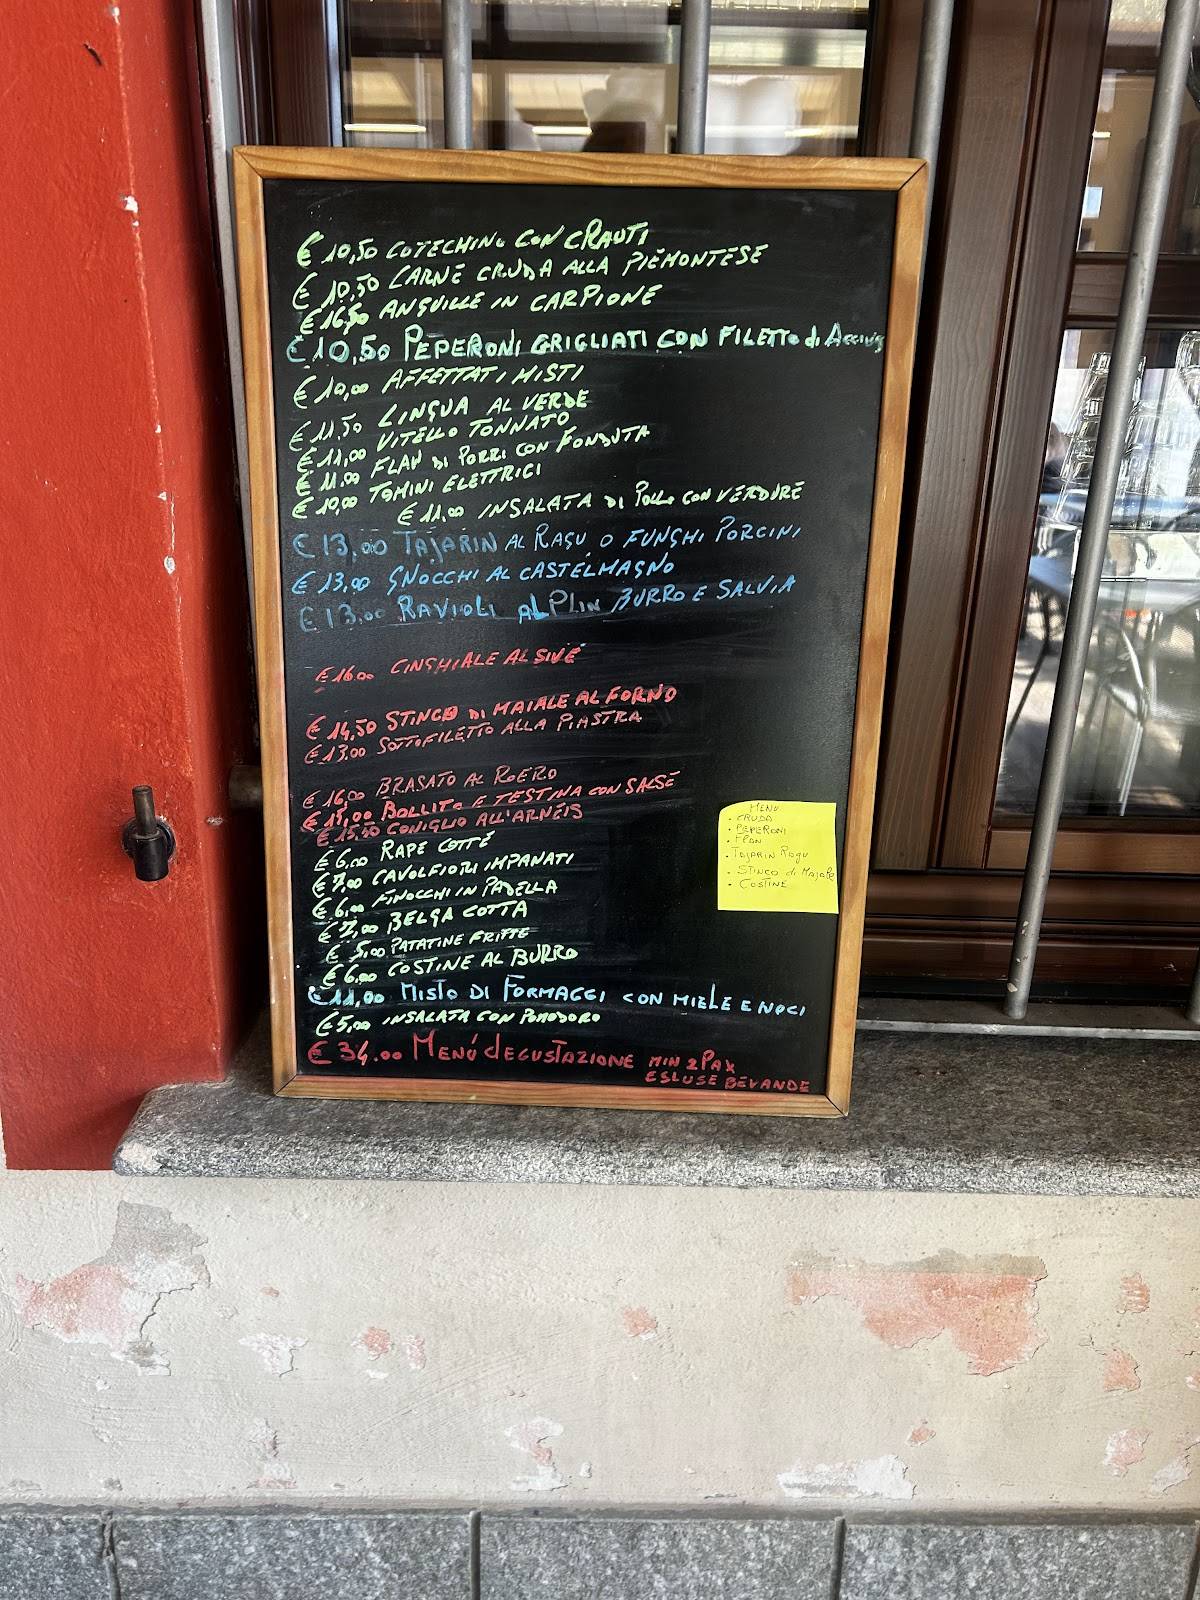 € 10,50 COTECHINO CON CRAUTI
€ 10,50 CARNE CRUDA ALLA PIEMONTESE
€ 16,50 ANGUILLE IN CARPIONE
€ 10,50 PEPERONI GRIGLIATI CON FILETTO di Acciug
€ 10,00 AFFETTATI MISTI
€ 11,50 LINGUA AL VERDE
€ 11,00 VITELLO TONNATO
€ 11,00 FLAN DI PORRI CON FONDUTA
€ 10,00 TOMINI ELETTRICI
€ 11,00 INSALATA DI POLLO CON VERDURE
€ 13,00 TAJARIN AL RAGU O FUNGHI PORCINI
€ 13,00 GNOCCHI AL CASTELMAGNO
€ 13,00 RAVIOLI AL PLIN BURRO E SALVIA
€ 16,00 CINGHIALE AL SIVÉ
€ 14,50 STINCO DI MAIALE AL FORNO
€ 13,00 SOTTOFILETTO ALLA PIASTRA
€ 16,00 BRASATO AL ROERO
BOLLITO E TESTINA CON SALSE
€ 15,50 CONIGLIO ALL'ARNEIS
€ 6,00 RAPE COTTE
€ 7,00 CAVOLFIORI IMPANATI
€ 6,00 FINOCCHI IN PADELLA
€ 7,00 BELGA COTTA
€ 5,00 PATATINE FRITTE
€ 6,00 COSTINE AL BURRO
€ 11,00 MISTO DI FORMAGGI CON MIELE E NOCI
€ 5,00 INSALATA CON POMODORO
€ 34,00 MENÚ dEGUSTAZIONE MIN 2 PAX
ESLUSE BEVANDE
MENU
• CRUDA
• PEPERONI
• FLAN
• TAJARIN RAGU
• STINCO di MAJALE
• COSTINE